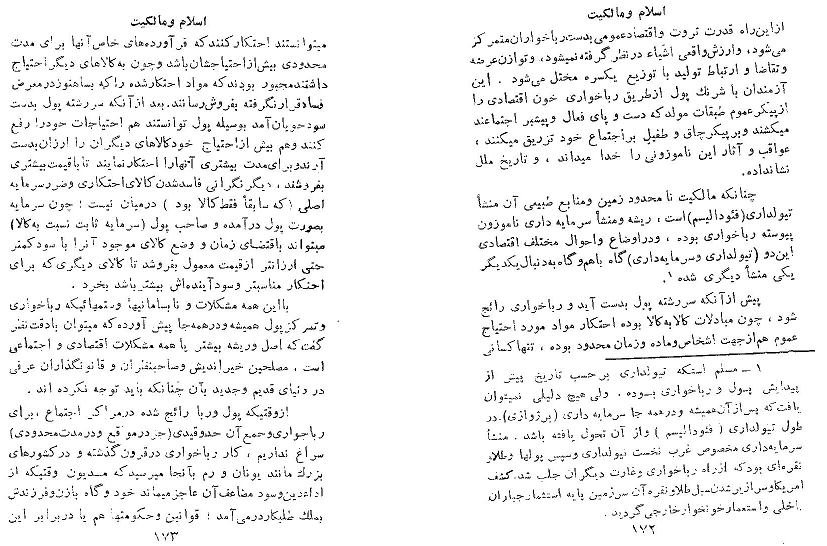 اسلام و مالکیت
از این راه قدرت ثروت و اقتصاد عمومی بدست رباخواران متمرکز
می‌شود، و ارزش واقعی اشیاء در نظر گرفته نمیشود، و توازن عرضه
و تقاضا و ارتباط تولید با توزیع یکسره مختل می‌شود . این
آزمندان با شرنک پول از طریق رباخواری خون اقتصادی را
از پیکر عموم طبقات مولد که دست و پای فعال و پیشبر اجتماعند
میکشند و بر پیکر چاق و طفیلی بر اجتماع خود تزریق میکنند ،
عواقب و آثار این ناموزونی را خدا میداند ، و تاریخ ملل
نشانداده.
چنانکه مالکیت نامحدود زمین و منابع طبیعی آن منشأ
تیولداری (فئودالیسم) است ، ریشه و منشأ سرمایه داری ناموزون
پیوسته رباخواری بوده ، و در اوضاع و احوال مختلف اقتصادی
این دو (تیولداری و سرمایه‌داری) گاه با هم و گاه به دنبال یکدیگر
یکی منشأ دیگری شده ۱.
پیش از آنکه سررشته پول بدست آید و رباخواری رائج
شود ، چون مبادلات کالا به کالا بوده احتکار مواد مورد احتیاج
عموم هم از جهت اشخاص و ماده و زمان محدود بوده ، تنها کسانی
۱ - مسلم استکه تیولداری بر حسب تاریخ پیش از
پیدایش پول و رباخواری بوده ، ولی هیچ دلیلی نمیتوان
یافت که پس از آن همیشه و در همه جا سرمایه داری (برژوازی) در
طول تیولداری ( فئودالیسم ) و از آن تحول یافته باشد . منشأ
سرمایه‌داری مخصوص غرب نخست تیولداری و سپس پولها و طلا و
نقره‌ای بود که از راه رباخواری و غارت دیگران جلب شد. کشف
امریکا و سرازیر شدن سیل طلا و نقره آن سرزمین پایه استثمار جباران
داخلی و استعمار خونخوار خارجی گردید .
۱۷۲
اسلام و مالکیت
میتوانستند احتکار کنند که فرآورده‌های خاص آنها برای مدت
محدودی بیش از احتیاجشان باشد و چون به کالاهای دیگر احتیاج
داشتند مجبور بودند که مواد احتکار شده را که بسا هنوز در معرض
فساد قرار نگرفته بفروش رسانند، بعد از آنکه سررشته پول بدست
سودجویان آمد بوسیله پول توانستند هم احتیاجات خود را رفع
کنند و هم بیش از احتیاج خود کالاهای دیگران را ارزان بدست
آرند و برای مدت بیشتری آنها را احتکار نمایند تا با قیمت بیشتری
بفروشند ، دیگر نگرانی فاسد شدن کالای احتکاری و ضرر سرمایه
اصلی (که سابقاً فقط کالا بود ) در میان نیست ؛ چون سرمایه
بصورت پول درآمده و صاحب پول (سرمایه ثابت نسبت به کالا)
میتواند باقتضای زمان و وضع کالای موجود آنرا با سود کمتر
حتی ارزانتر از قیمت معمول بفروشد تا کالای دیگری که برای
احتکار مناسبتر و سود آینده‌اش بیشتر باشد بخرد .
با این همه مشکلات و نابسامانیها و ستمهائیکه رباخواری
و تمرکز پول همیشه و در همه جا پیش آورده که میتوان با دقت نظر
گفت که اصل و ریشه بیشتر یا همه مشکلات اقتصادی و اجتماعی
است . مصلحین خیراندیش و صاحبنظران و قانونگذاران عرفی
در دنیای قدیم و جدید بآن چنانکه باید توجه نکرده اند .
از وقتیکه پول و ربا رائج شده در مراکز اجتماع ، برای
رباخواری و جمع آن حد و قیدی (جز در مواقع و در مدت محدودی)
سراغ نداریم ، کار رباخواری در قرون گذشته و در کشورهای
بزرگ مانند یونان و رم بآنجا میرسید که مدیون وقتیکه از
اداء دین و سود مضاعف آن عاجز میماند خود و گاه با زن و فرزندش
بملک طلبکار درمی‌آمد ؛ قوانین و حکومتها هم یا در برابر این
۱۷۳